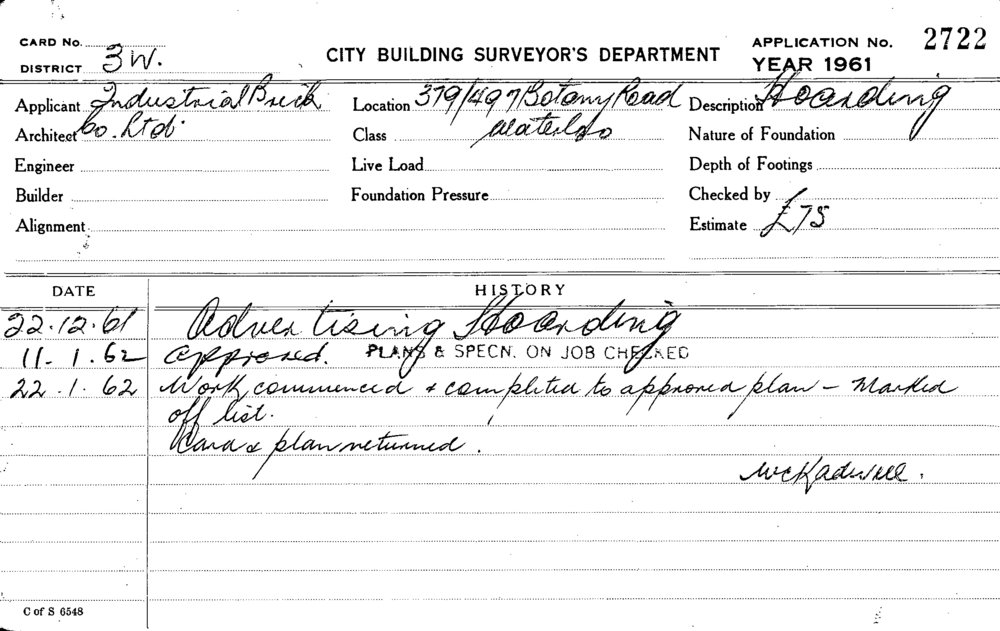 CARD No.
DISTRICT 3W.
CITY BUILDING SURVEYOR'S DEPARTMENT
APPLICATION No. 2722
YEAR 1961
Applicant Industrial Brick
Architect Co. Ltd.
Engineer
Builder
Alignment
Location 379/497 Botany Road
Class Waterloo
Live Load
Foundation Pressure
Description Hoarding
Nature of Foundation
Depth of Footings
Checked by
Estimate £75
DATE HISTORY
22.12.61 Advertising Hoarding
11.1.62 approved. PLANS & SPECN. ON JOB CHECKED
22.1.62 Work commenced & completed to approved plan - Marked
off list.
Card & plan returned.
C of S 6548